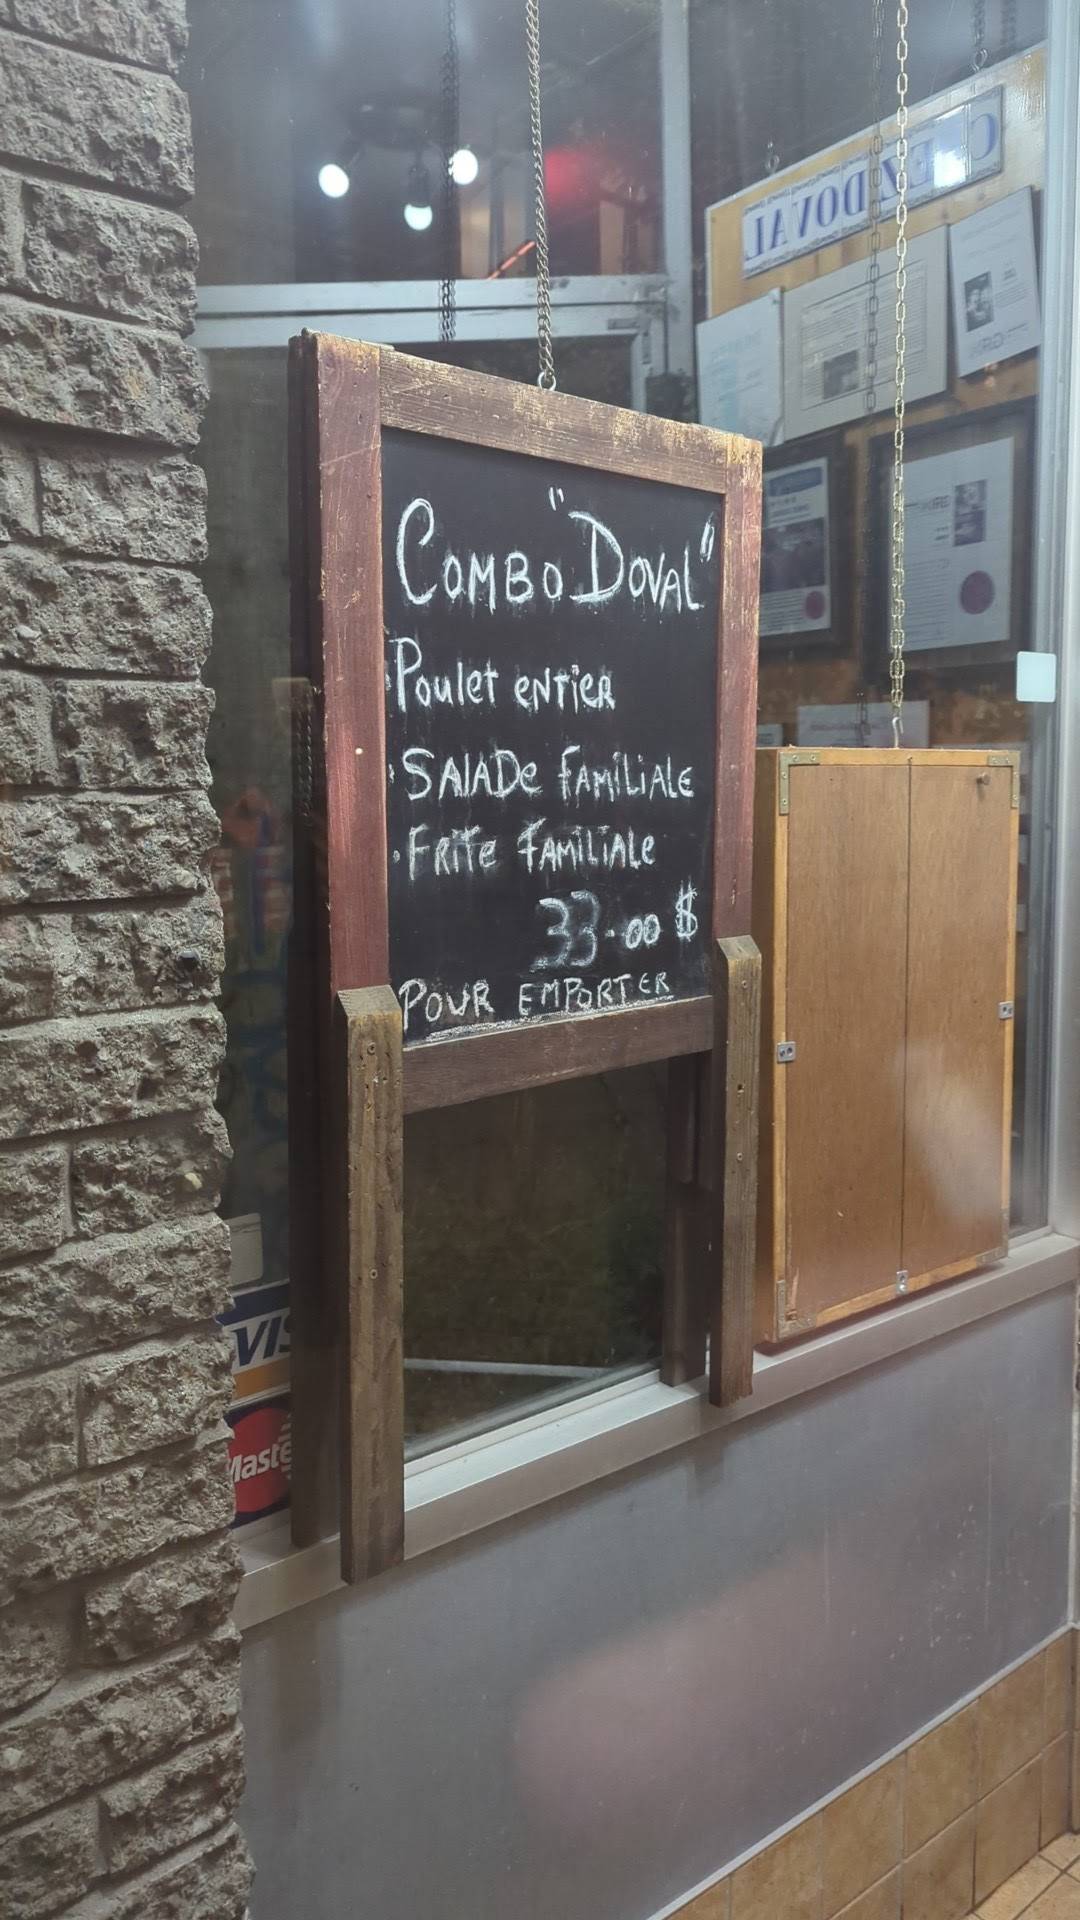 CHEZ DOVAL
COMBO "DOVAL"
· POULET ENTIER
· SALADE FAMILIALE
· FRITE FAMILIALE
33.00 $
POUR EMPORTER
VIS
Maste